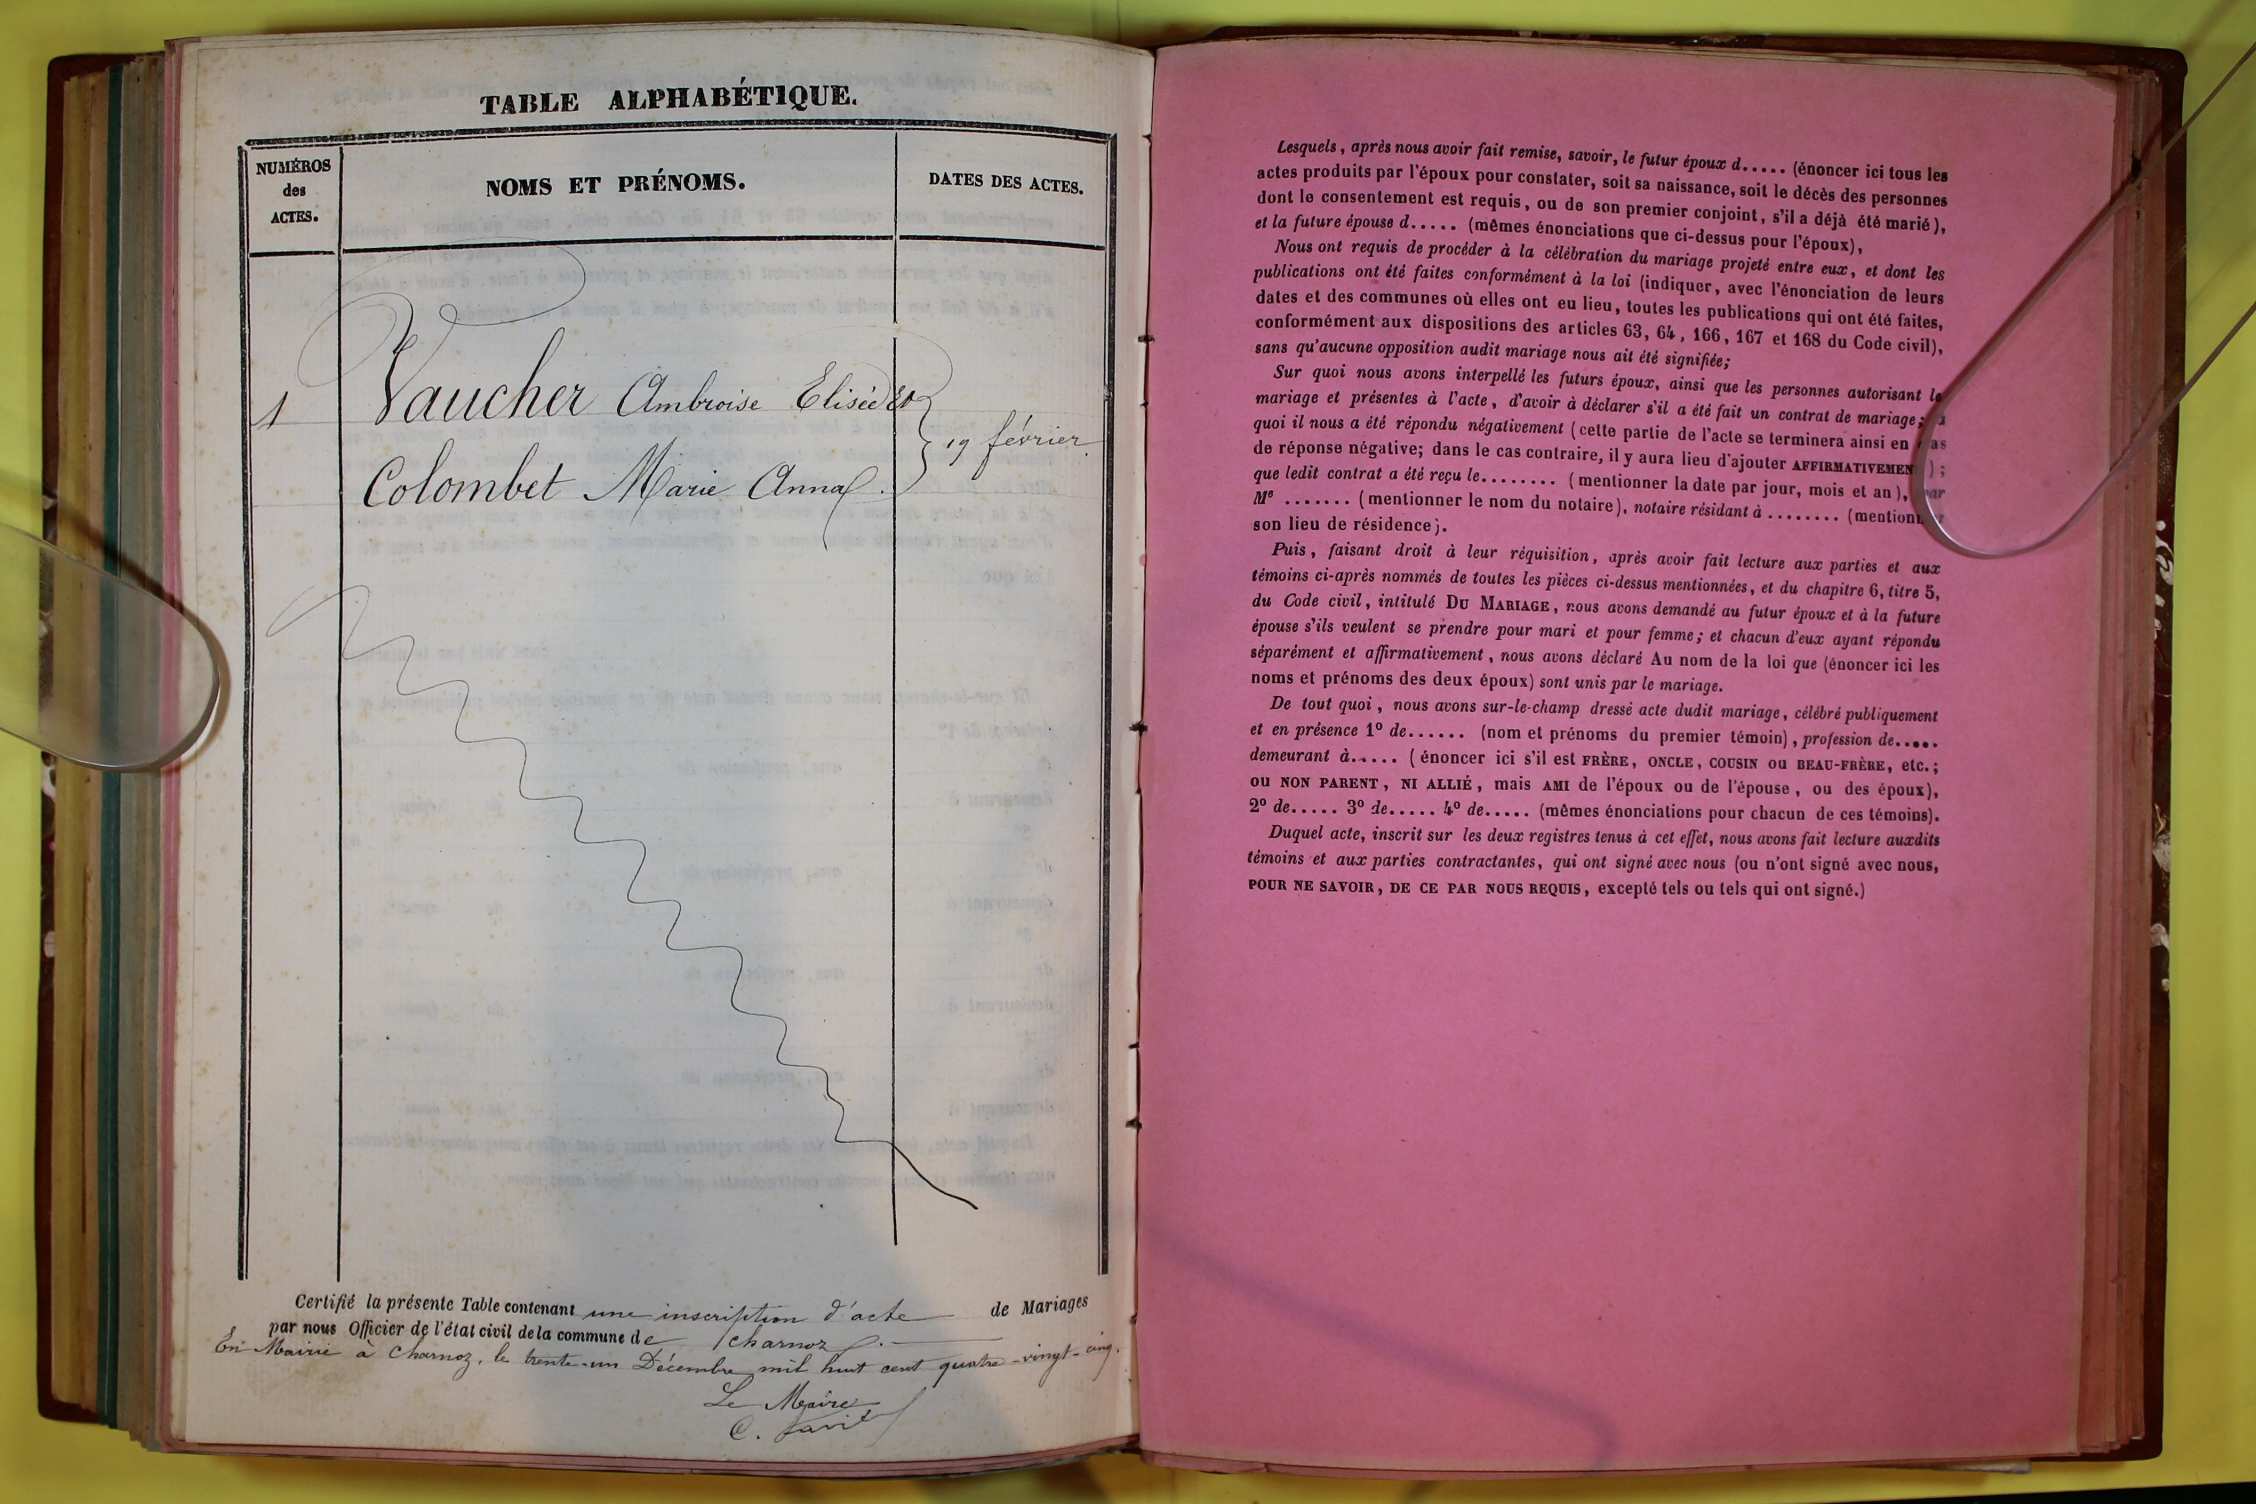 TABLE ALPHABÉTIQUE.
NUMÉROS
des
ACTES.
NOMS ET PRÉNOMS.
DATES DES ACTES.
1
Vaucher Ambroise Elisée
Colombet Marie Anna.
19 février
Certifié la présente Table contenant une inscription d'acte de Mariages
par nous Officier de l'état civil de la commune de Charnoz.
En Mairie à Charnoz, le trente-un Décembre mil huit cent quatre-vingt-cinq.
Le Maire
C.
Lesquels, après nous avoir fait remise, savoir, le futur époux d..... (énoncer ici tous les
actes produits par l'époux pour constater, soit sa naissance, soit le décès des personnes
dont le consentement est requis, ou de son premier conjoint, s'il a déjà été marié),
et la future épouse d..... (mêmes énonciations que ci-dessus pour l'époux),
Nous ont requis de procéder à la célébration du mariage projeté entre eux, et dont les
publications ont été faites conformément à la loi (indiquer, avec l'énonciation de leurs
dates et des communes où elles ont eu lieu, toutes les publications qui ont été faites,
conformément aux dispositions des articles 63, 64, 166, 167 et 168 du Code civil),
sans qu'aucune opposition audit mariage nous ait été signifiée;
Sur quoi nous avons interpellé les futurs époux, ainsi que les personnes autorisant le
mariage et présentes à l'acte, d'avoir à déclarer s'il a été fait un contrat de mariage; à
quoi il nous a été répondu négativement (cette partie de l'acte se terminera ainsi en cas
de réponse négative; dans le cas contraire, il y aura lieu d'ajouter AFFIRMATIVEMENT);
que ledit contrat a été reçu le........ (mentionner la date par jour, mois et an), par
Me ....... (mentionner le nom du notaire), notaire résidant à ........ (mentionner
son lieu de résidence).
Puis, faisant droit à leur réquisition, après avoir fait lecture aux parties et aux
témoins ci-après nommés de toutes les pièces ci-dessus mentionnées, et du chapitre 6, titre 5,
du Code civil, intitulé DU MARIAGE, nous avons demandé au futur époux et à la future
épouse s'ils veulent se prendre pour mari et pour femme; et chacun d'eux ayant répondu
séparément et affirmativement, nous avons déclaré Au nom de la loi que (énoncer ici les
noms et prénoms des deux époux) sont unis par le mariage.
De tout quoi, nous avons sur-le-champ dressé acte dudit mariage, célébré publiquement
et en présence 1º de...... (nom et prénoms du premier témoin), profession de.....
demeurant à..... (énoncer ici s'il est FRÈRE, ONCLE, COUSIN ou BEAU-FRÈRE, etc.;
ou NON PARENT, NI ALLIÉ, mais AMI de l'époux ou de l'épouse, ou des époux),
2º de..... 3º de..... 4º de..... (mêmes énonciations pour chacun de ces témoins).
Duquel acte, inscrit sur les deux registres tenus à cet effet, nous avons fait lecture auxdits
témoins et aux parties contractantes, qui ont signé avec nous (ou n'ont signé avec nous,
POUR NE SAVOIR, DE CE PAR NOUS REQUIS, excepté tels ou tels qui ont signé.)